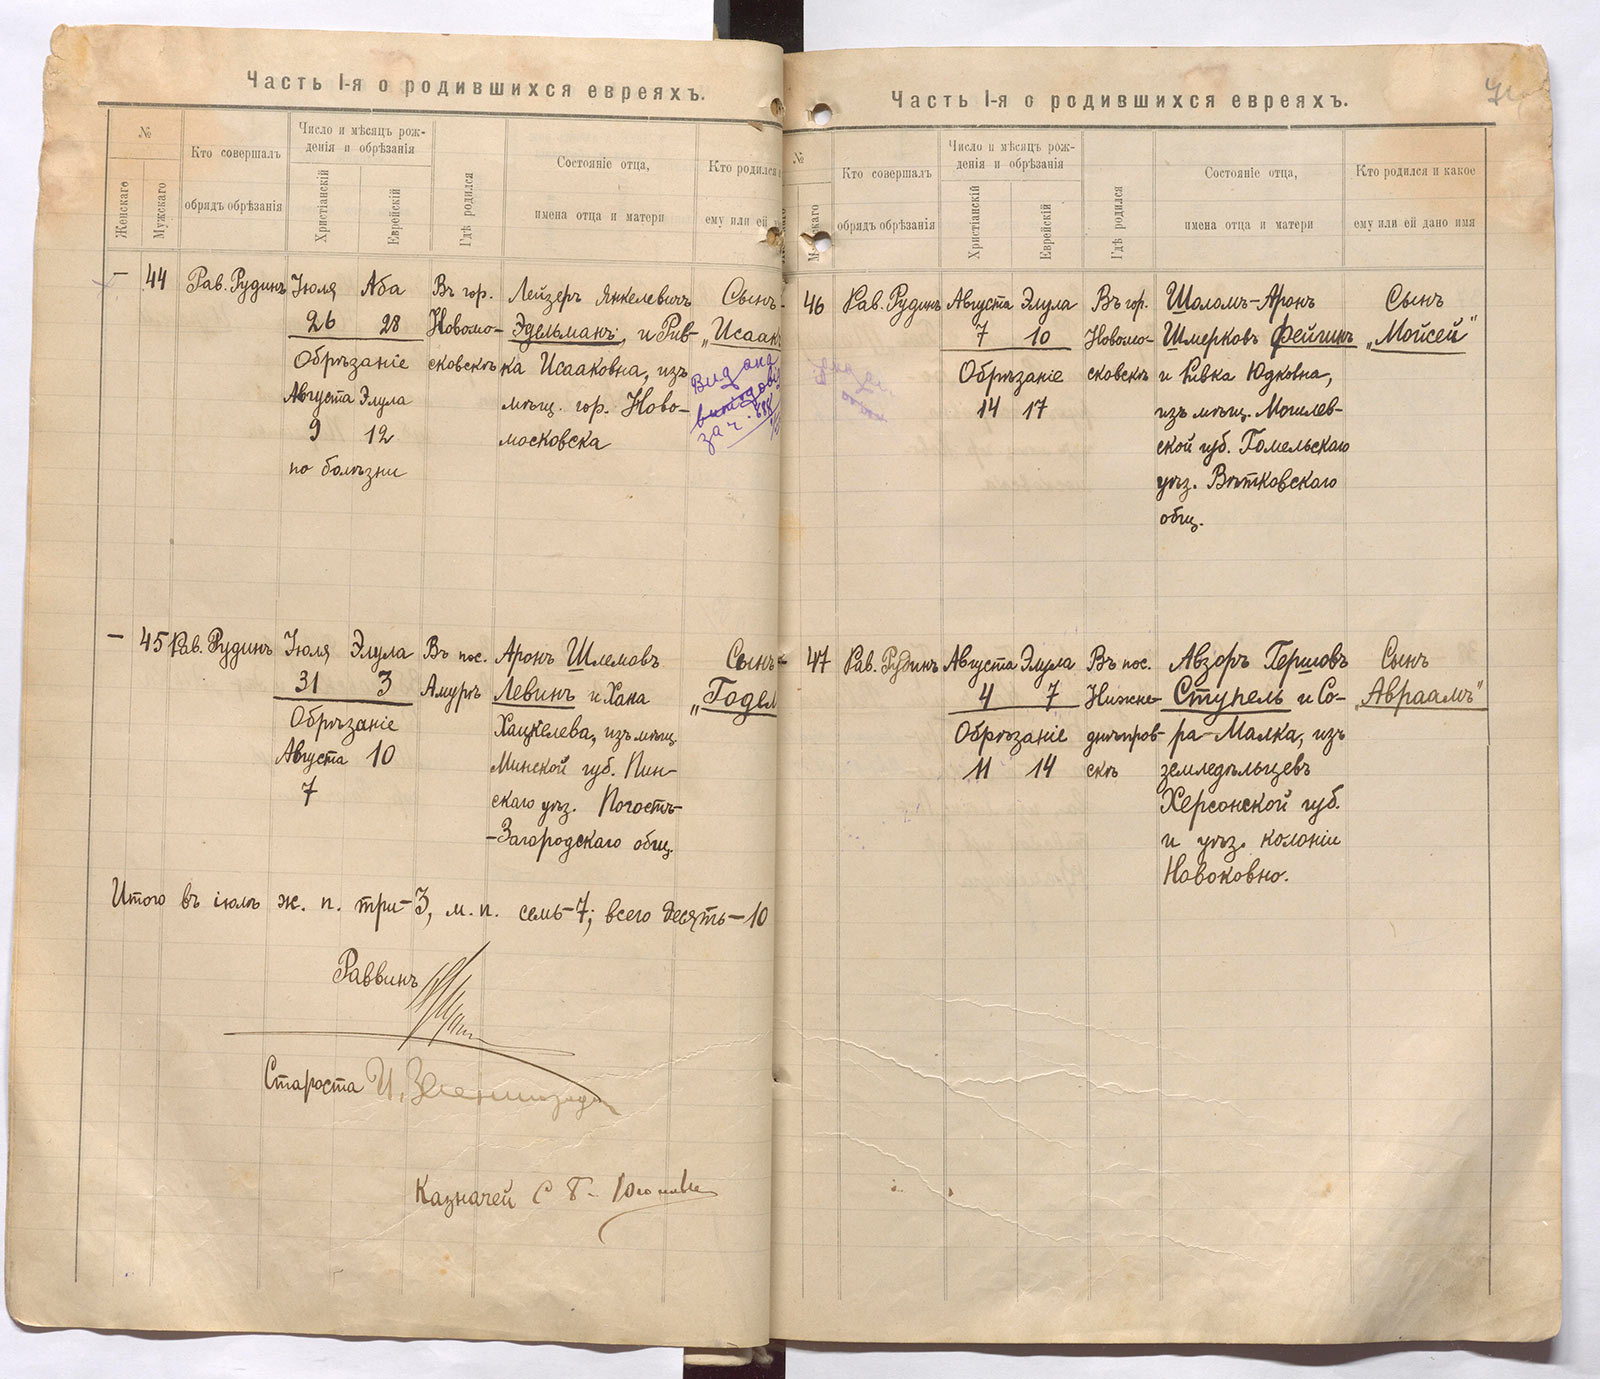 Часть I-я о родившихся евреяхъ.
№
Женскаго
Мужскаго
Кто совершалъ
обрядъ обрѣзанія
Число и мѣсяцъ рож-
денія и обрѣзанія
Христіанскій
Еврейскій
Гдѣ родился
Состояніе отца,
имена отца и матери
Кто родился и
ему или ей
— 44 Рав. Рудинъ Іюля Аба Въ гор. Лейзеръ Янкелевичъ Сынъ
26 28 Новомо- Эдельманъ, и Рив- „Исаакъ
Обрѣзаніе сковскѣ ка Исааковна, изъ
Августа Элула мѣщ. гор. Ново-
9 12 московска
по болѣзни
Видана
за ч.
— 45 Рав. Рудинъ Іюля Элула Въ пос. Аронъ Шлемовъ Сынъ
31 3 Амурѣ Левинъ и Хана „Годел
Обрѣзаніе Хацкелева, изъ мѣщ.
Августа 10 Минской губ. Пин-
7 скаго уѣз. Погостъ-
-Загородскаго общ.
Итого въ іюлѣ ж. п. три-3, м. п. семь-7; всего десять-10
Раввинъ
Староста И.
Казначей С
Часть I-я о родившихся евреяхъ.
№
Кто совершалъ
обрядъ обрѣзанія
Число и мѣсяцъ рож-
денія и обрѣзанія
Христіанскій
Еврейскій
Гдѣ родился
Состояніе отца,
имена отца и матери
Кто родился и какое
ему или ей дано имя
46 Рав. Рудинъ Августа Элула Въ гор. Шоломъ-Аронъ Сынъ
7 10 Новомо- Шмерковъ Фейгинъ „Мойсей"
Обрѣзаніе сковскѣ и Ривка Юдковна,
14 17 изъ мѣщ. Могилев-
ской губ. Гомельскаго
уѣз. Вѣтковскаго
общ.
47 Рав. Рудинъ Августа Элула Въ пос. Авзоръ Гершовъ Сынъ
4 7 Нижне- Ступель и Со- „Авраамъ"
Обрѣзаніе днѣпров- ра-Малка, изъ
11 14 скѣ земледѣльцевъ
Херсонской губ.
и уѣз. колоніи
Новоковно.